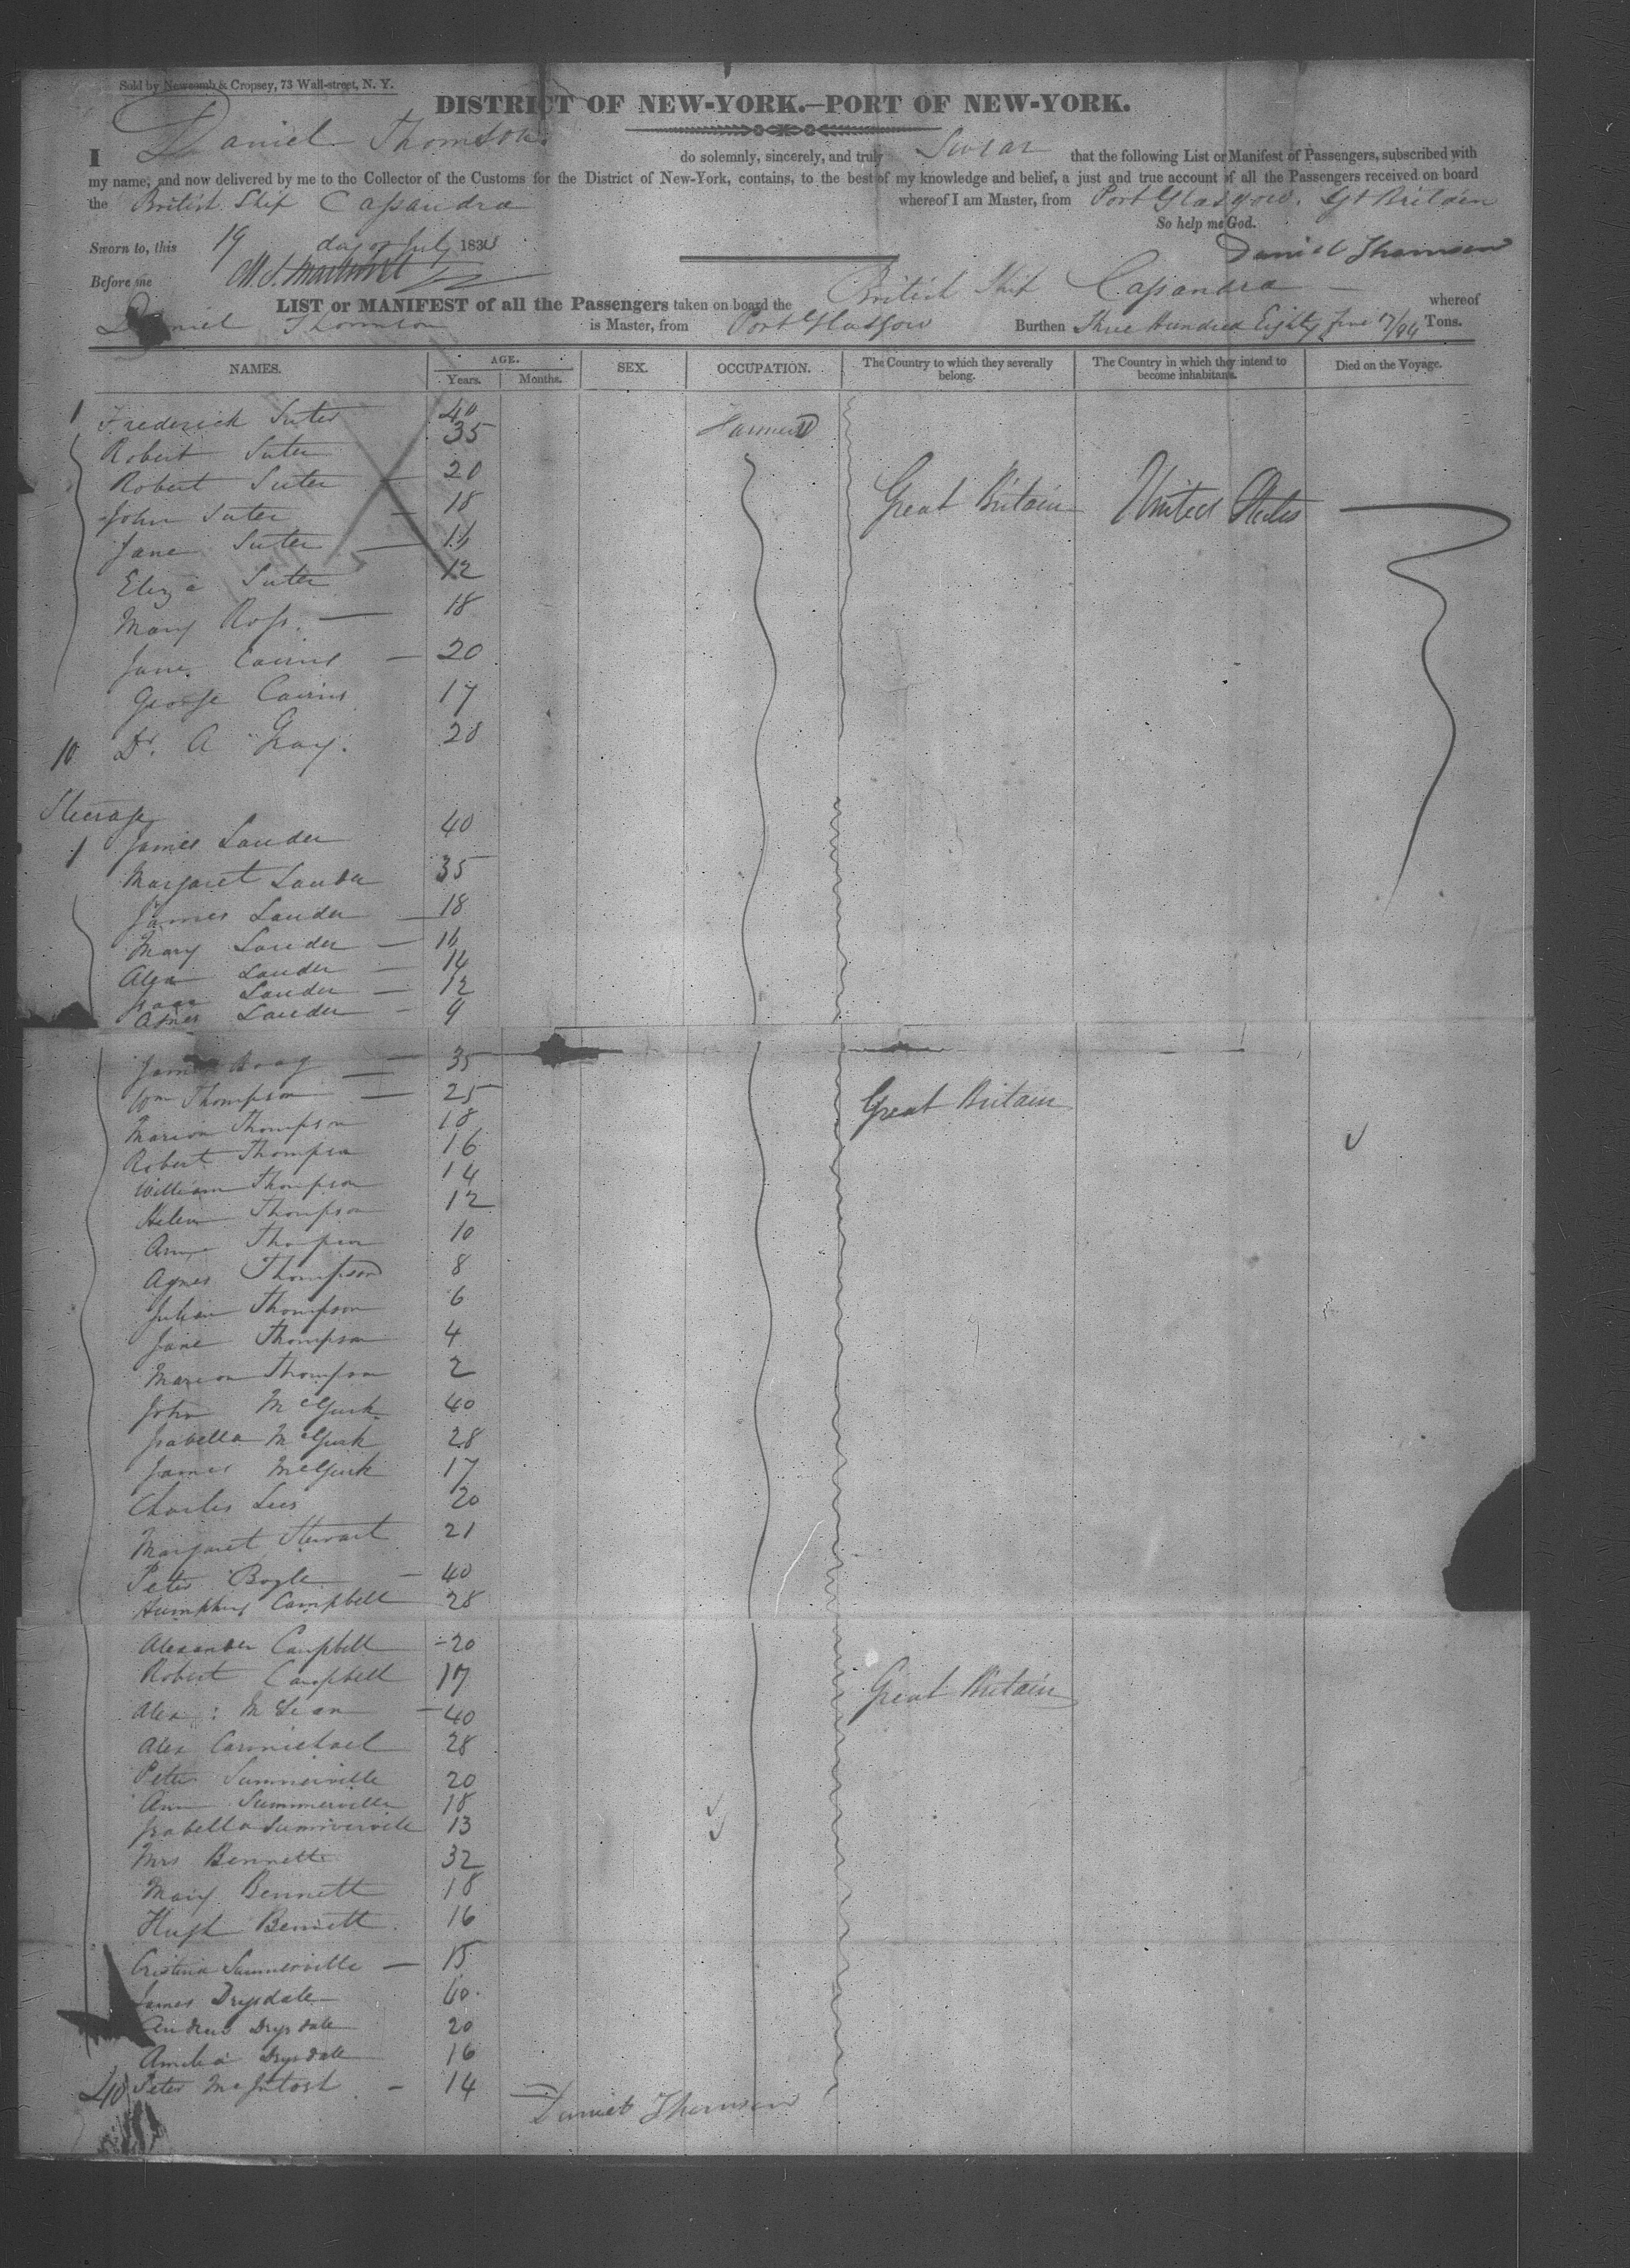 Sold by Newcomb & Cropsey, 73 Wall-street, N. Y.
DISTRICT OF NEW-YORK.—PORT OF NEW-YORK.
I Daniel Thomson do solemnly, sincerely, and truly Swear that the following List or Manifest of Passengers, subscribed with
my name, and now delivered by me to the Collector of the Customs for the District of New-York, contains, to the best of my knowledge and belief, a just and true account of all the Passengers received on board
the British Ship Cassandra whereof I am Master, from Port Glasgow. Gt Britain
So help me God.
Sworn to, this 19 day of July 183
Daniel Thomson
Before me
LIST or MANIFEST of all the Passengers taken on board the British Ship Cassandra whereof
Daniel Thomson is Master, from Port Glasgow Burthen Three Hundred Eighty five 17/94 Tons.
NAMES. AGE. Years. Months. SEX. OCCUPATION. The Country to which they severally belong. The Country in which they intend to become inhabitans. Died on the Voyage.
1 Frederick Suter 40 Farmer
Robert Suter 35
Robert Suter 20
John Suter 18 Great Britain United States
Jane Suter 16
Eliza Suter 12
Mary Ross 18
Jane Cairns 20
George Cairns 17
10 Dr. A Gray. 20
Steerage
1 James Lauder 40
Margaret Lauder 35
James Lauder 18
Mary Lauder 16
Alexr Lauder 14
Isaac Lauder 12
Agnes Lauder 9
James 35
Wm Thompson 25 Great Britain
Marion Thompson 18
Robert Thompson 16
William Thompson 14
Helen Thompson 12
Anne Thompson 10
Agnes Thompson 8
Julian Thompson 6
Jane Thompson 4
Marion Thompson 2
John McGurk 40
Isabella McGurk 28
James McGurk 17
Charles Lees 20
Margaret Stewart 21
Peter Boyle 40
Humphry Campbell 28
Alexander Campbell 20
Robert Campbell 17 Great Britain
Alex: McLean 40
Alex Carmichael 28
Peter Summerville 20
Ann Summerville 18
Isabella Summerville 13
Mrs Bennett 32
Mary Bennett 18
Hugh Bennett 16
Cristina Summerville 15
James Drysdale 60
Andrew Drysdale 20
Amelia Drysdale 16
40 Peter McIntosh 14
Daniel Thomson